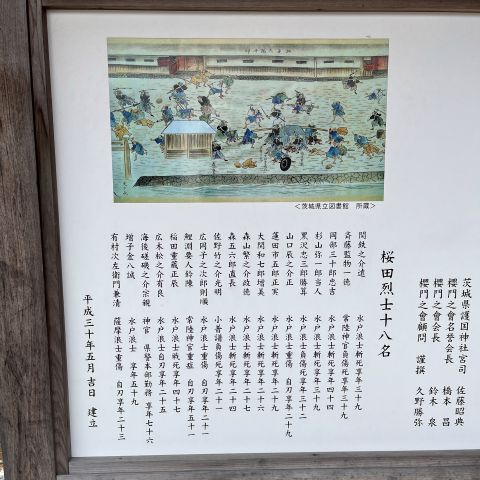 ＜茨城県立図書館　所蔵＞
茨城県護国神社宮司　佐藤昭典
櫻門之會名誉会長　橋本　昌
櫻門之會会長　鈴木　泉
櫻門之會顧問　謹撰　久野勝弥
桜田烈士十八名
関鉄之介遠　水戸浪士斬死享年三十九
斎藤監物一徳　常陸神官負傷死享年三十九
岡部三十郎忠吉　水戸浪士斬死享年四十四
杉山弥一郎当人　水戸浪士斬死享年三十九
黒沢忠三郎勝算　水戸浪士負傷死享年三十二
山口辰之介正　水戸浪士重傷　自刃享年二十九
蓮田市五郎正実　水戸浪士斬死享年二十九
大関和七郎増美　水戸浪士斬死享年二十六
森山繁之介政徳　水戸浪士斬死享年二十七
森五六郎直長　水戸浪士斬死享年二十四
佐野竹之介光明　小普請負傷死享年二十一
広岡子之次郎則順　水戸浪士重傷　自刃享年二十一
鯉淵要人鈴陳　常陸神官重症　自刃享年五十一
稲田重蔵正辰　水戸浪士戦死享年四十七
広木松之介有良　水戸浪士自刃享年二十五
海後磋磯之介宗親　神官　県警本部勤務　享年七十六
増子金八誠　水戸浪士　享年五十九
有村次左衛門兼清　薩摩浪士重傷　自刃享年二十三
平成三十年五月吉日　建立